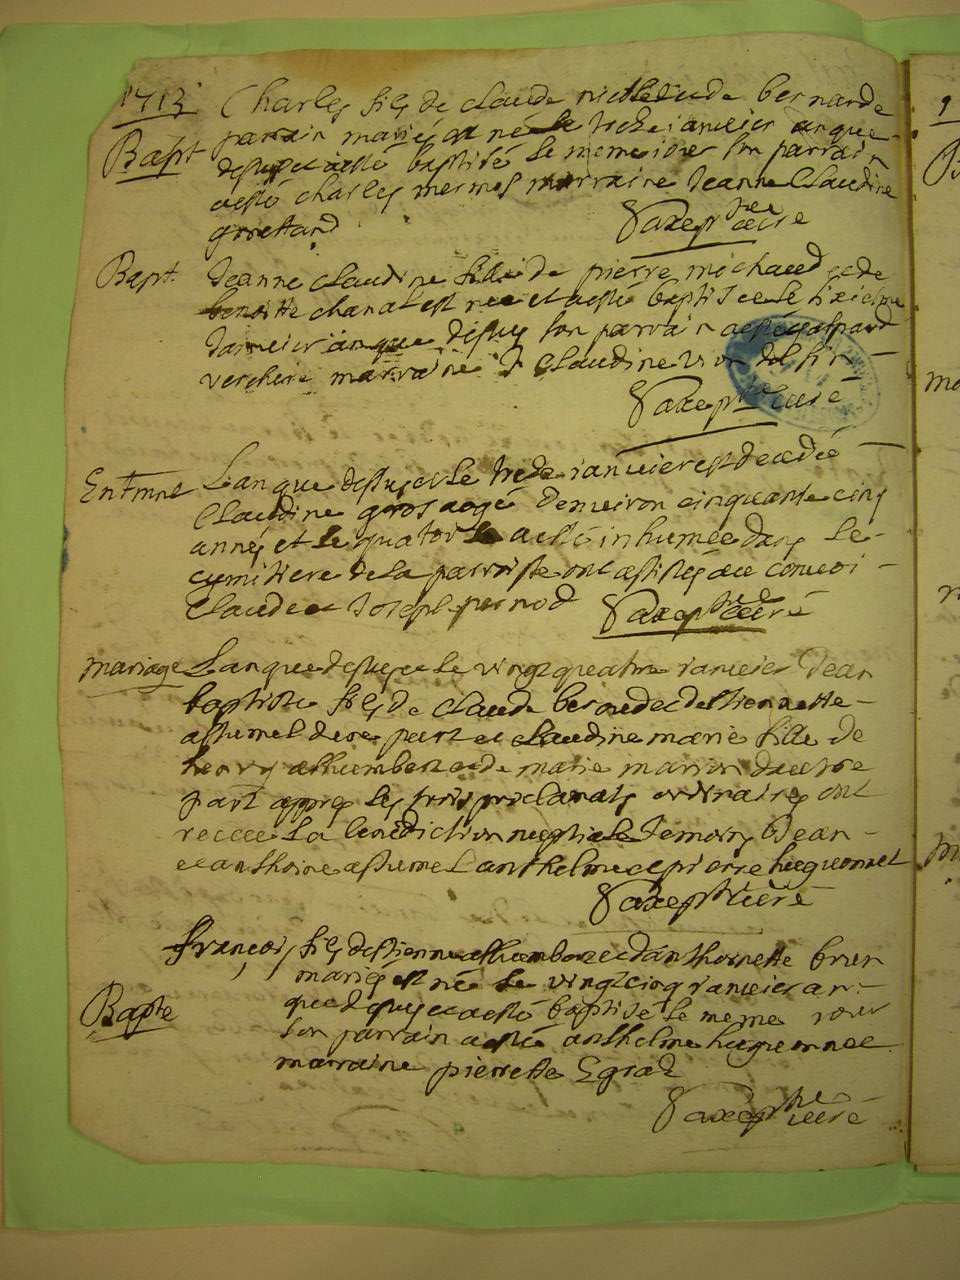 1713
Charles fils de claude nicole et de bernarde
Bapt
parrain mariés est né le treize janvier an que
dessus et a esté baptisé le meme jour son parrain
a esté charles mermet marraine Jeanne Claudine
Saxe ptre curé
Bapt.
Jeanne claudine fille de pierre michaud et de
benoitte chanal est née et a esté baptisee le
janvier an que dessus son parrain a esté gaspard
verchere marraine Claudine
Saxe ptre curé
Entmnt
L'an que dessus et le treize janvier est decedée
Claudine gros aagé d'environ cinquante cinq
annés et le quatorze a esté inhumée dans le
cymitiere de la parroisse ont assistés au convoi
Claude et Joseph pernod
Saxe ptre curé
mariage
L'an que dessus et le vingt quatre janvier Jean
baptiste fils de claude beroud et d'estiennette
assumel d'une part et claudine marie fille de
henry allhumbert et de marie marion d'autre
part appres les trois proclamats ordinaires ont
receu la benediction nuptiale temoins Jean
et anthoine assumel anthelme et pierre huguonnet
Saxe ptre curé
françois fils d'estienne allhumbert et d'anthoinette brun
mariés est né le vingt cinq janvier an
Bapte
que dessus et a esté baptisé le meme jour
son parrain a esté anthelme huguonnet
marraine pierrette Egraz
Saxe ptre curé